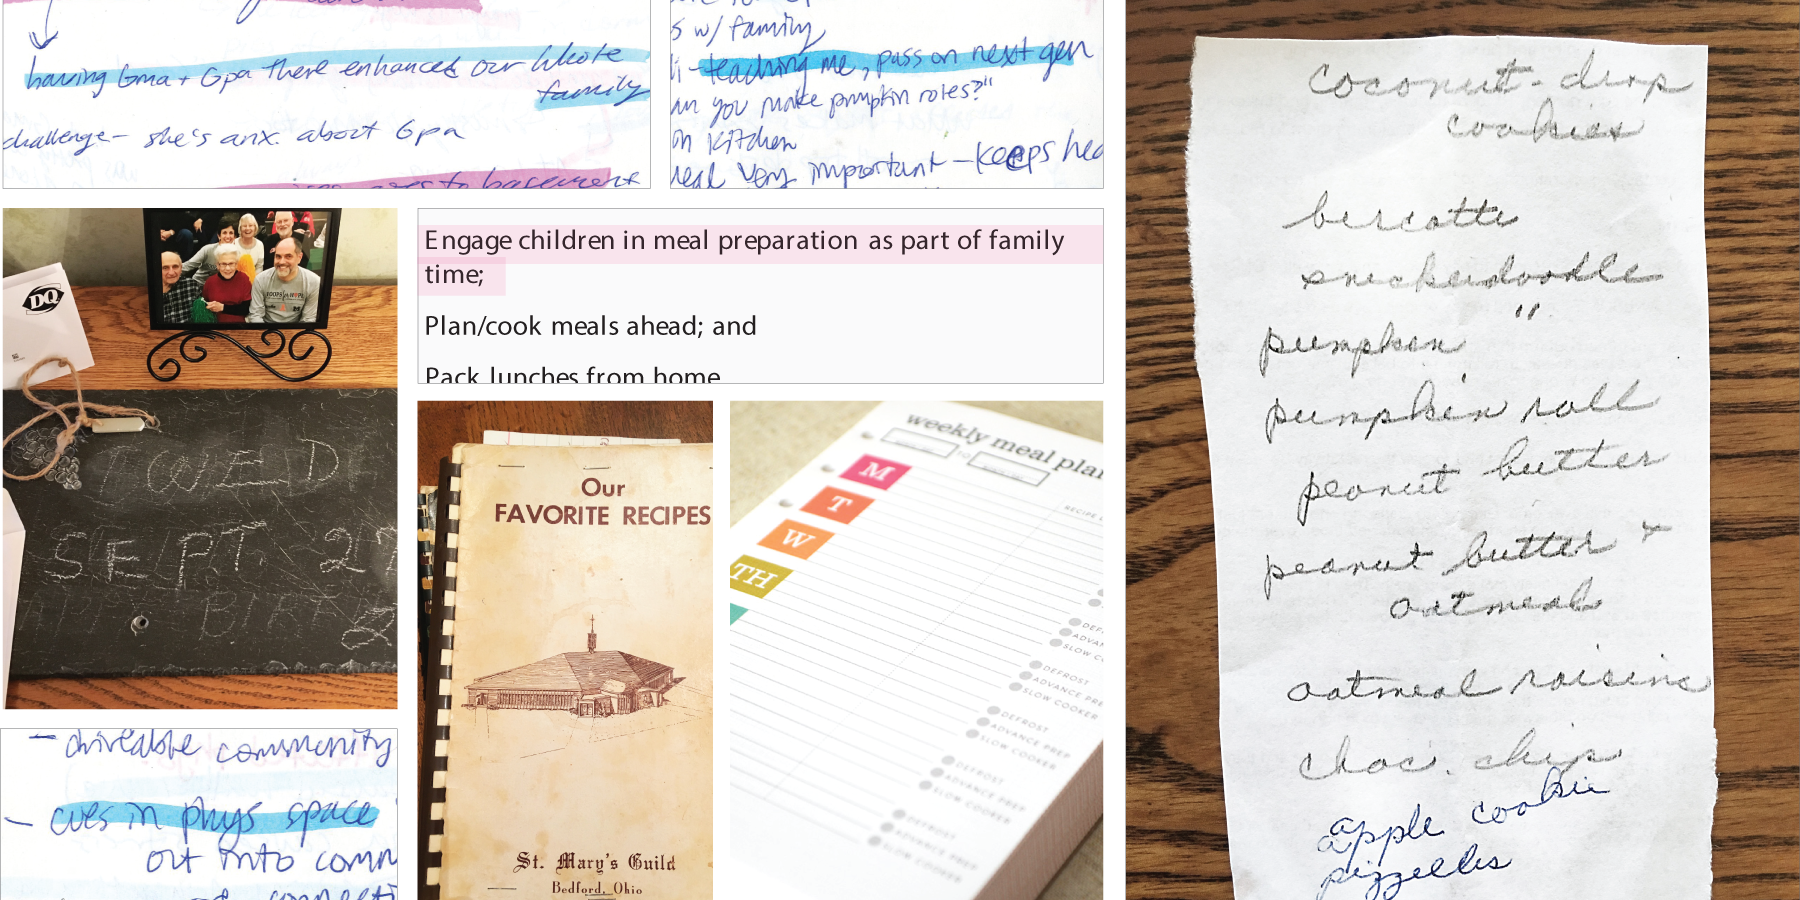 having Gma + Gpa there enhanced our whole
family
challenge - she's anx. about Gpa
to basement
s w/ family
teaching me, pass on next gen
you make pumpkin roles?"
on kitchen
meal very important - keeps hea
DQ
WED
SEPT. 27
Engage children in meal preparation as part of family
time;
Plan/cook meals ahead; and
Pack lunches from home
Our
FAVORITE RECIPES
St. Mary's Guild
Bedford, Ohio
weekly meal plan
TO
M
T
W
TH
RECIPE
DEFROST
ADVANCE PREP
SLOW COOKER
DEFROST
ADVANCE PREP
SLOW COOKER
DEFROST
ADVANCE PREP
SLOW COOKER
DEFROST
ADVANCE PREP
SLOW COOKER
- driveable community
- cues in phys space
out into comm
coconut-drop
cookies
bescotti
snickerdoodle
pumpkin "
pumpkin roll
peanut butter
peanut butter +
oatmeal
oatmeal raisins
choc. chip
apple cookie
pizzelles